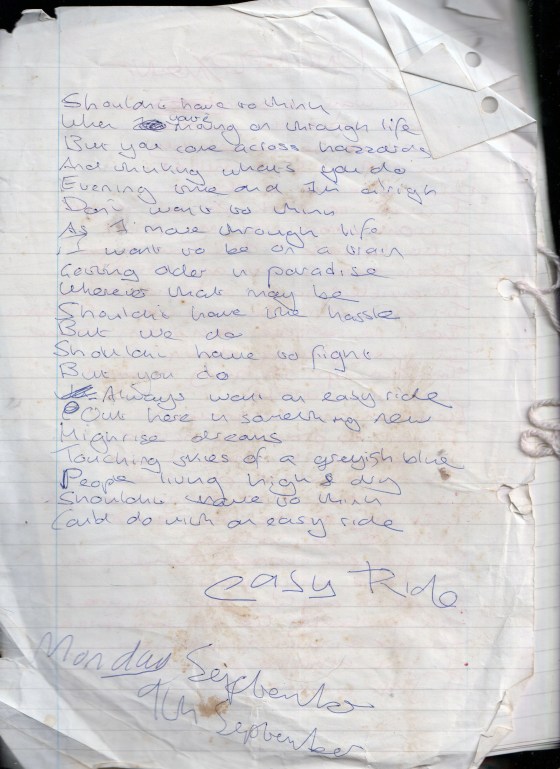 Shouldn't have to think
When you're moving on through life
But you come across hazzards
And thinking what's you do
Evening time and I'm alrigh
Don't want to think
As I move through life
I want to be on a train
Getting older in paradise
Wherever that may be
Shouldn't have the hassle
But we do
Shouldn't have to fight
But you do
Always want an easy ride
Out here in something new
Highrise dreams
Touching skies of a greyish blue
People living high & dry
Shouldn't have to think
Could do with an easy ride
easy Ride
Monday September
9th September